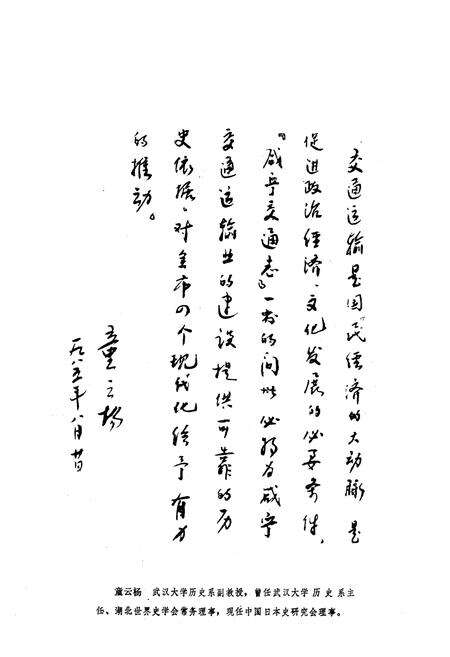 交通运输是国民经济的大动脉，是
促进政治经济、文化发展的必要条件，
《咸宁交通志》一书的问世必将为咸宁
交通运输业的建设提供可靠的历
史依据，对全市的四个现代化给予有力
的推动。
童云杨
一九八五年八月廿日
童云杨 武汉大学历史系副教授，曾任武汉大学历史系主
任、湖北世界史学会常务理事，现任中国日本史研究会理事。